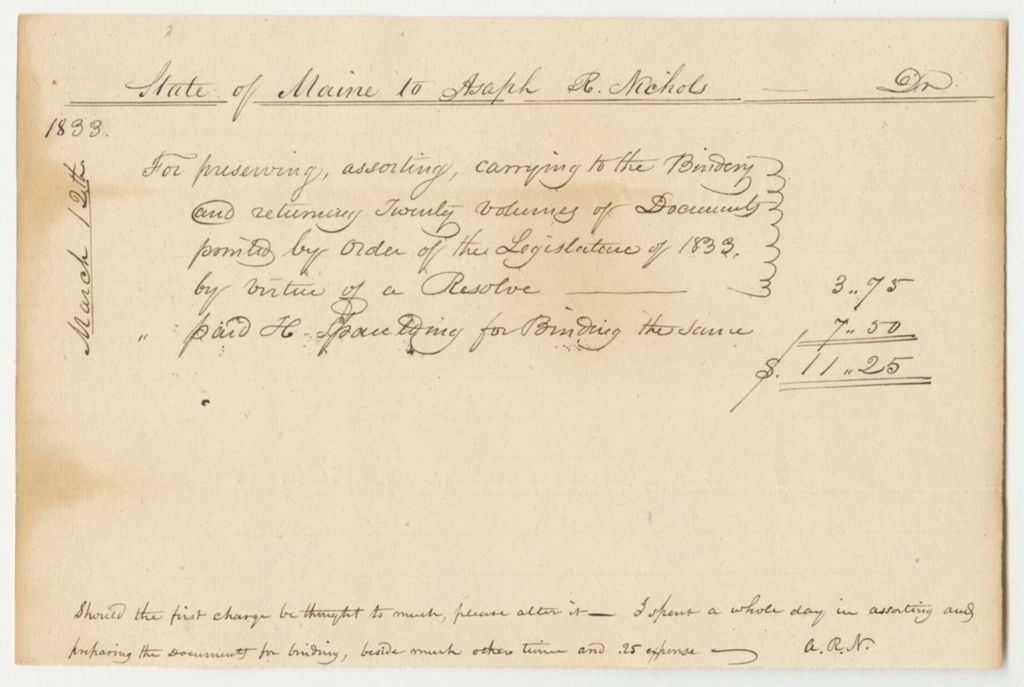 State of Maine to Asaph R. Nichols — Dr.
1833.
March 12th
For preserving, assorting, carrying to the Bindery
and returning Twenty volumes of Documents
printed by order of the Legislature of 1833.
by virtue of a Resolve — 3..75
" paid H. Spaulding for Binding the same 7..50
$. 11..25
Should the first charge be thought to much, please alter it — I spent a whole day in assorting and
preparing the Documents for binding, beside much other time and .25 expense — A.R.N.